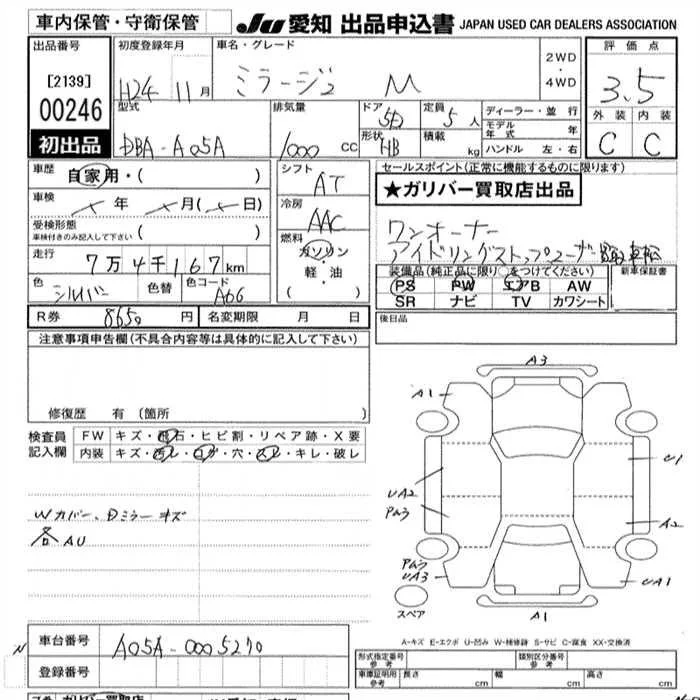 車内保管・守衛保管
JU 愛知 出品申込書 JAPAN USED CAR DEALERS ASSOCIATION
出品番号
[2139]
00246
初出品
初度登録年月
H24 11月
車名・グレード
ミラージュ M
2WD
・
4WD
評価点
3.5
外装 内装
C C
型式
DBA-A05A
排気量
1000 cc
ドア
5D
形状
HB
定員
5人
積載
kg
ディーラー・並行
モデル年式 年
ハンドル 左・右
車歴
自家用・( )
車検
年 月( 日)
受検形態
車検付きのみ記入して下さい ( )
走行
7万4千167km
色
シルバー
色替
色コード
A66
シフト
AT
冷房
AAC
燃料
ガソリン
・
軽・油
( )
セールスポイント(正常に機能するものに限ります)
★ガリバー買取店出品
ワンオーナー
装備品(純正品に限り○をつけてください)
PS PW エアB AW
SR ナビ TV カワシート
新車保証書
R券 8650円
名変期限 月 日
後日品
注意事項申告欄(不具合内容等は具体的に記入して下さい)
修復歴 有(箇所 )
検査員記入欄
FW キズ・飛石・ヒビ割・リペア跡・X要
内装 キズ・汚レ・コゲ・穴・スレ・キレ・破レ
Wカバー、Dミラーキズ
各AU
A3
A1
U1
UA2
A2
UA3
UA1
A1
スペア
A-キズ E-エクボ U-凹み W-補修跡 S-サビ C-腐食 XX-交換済
車台番号
A05A-0005270
登録番号
形式指定番号
参考
類別区分番号
参考
車庫証明用
参考
長さ cm 幅 cm 高さ cm